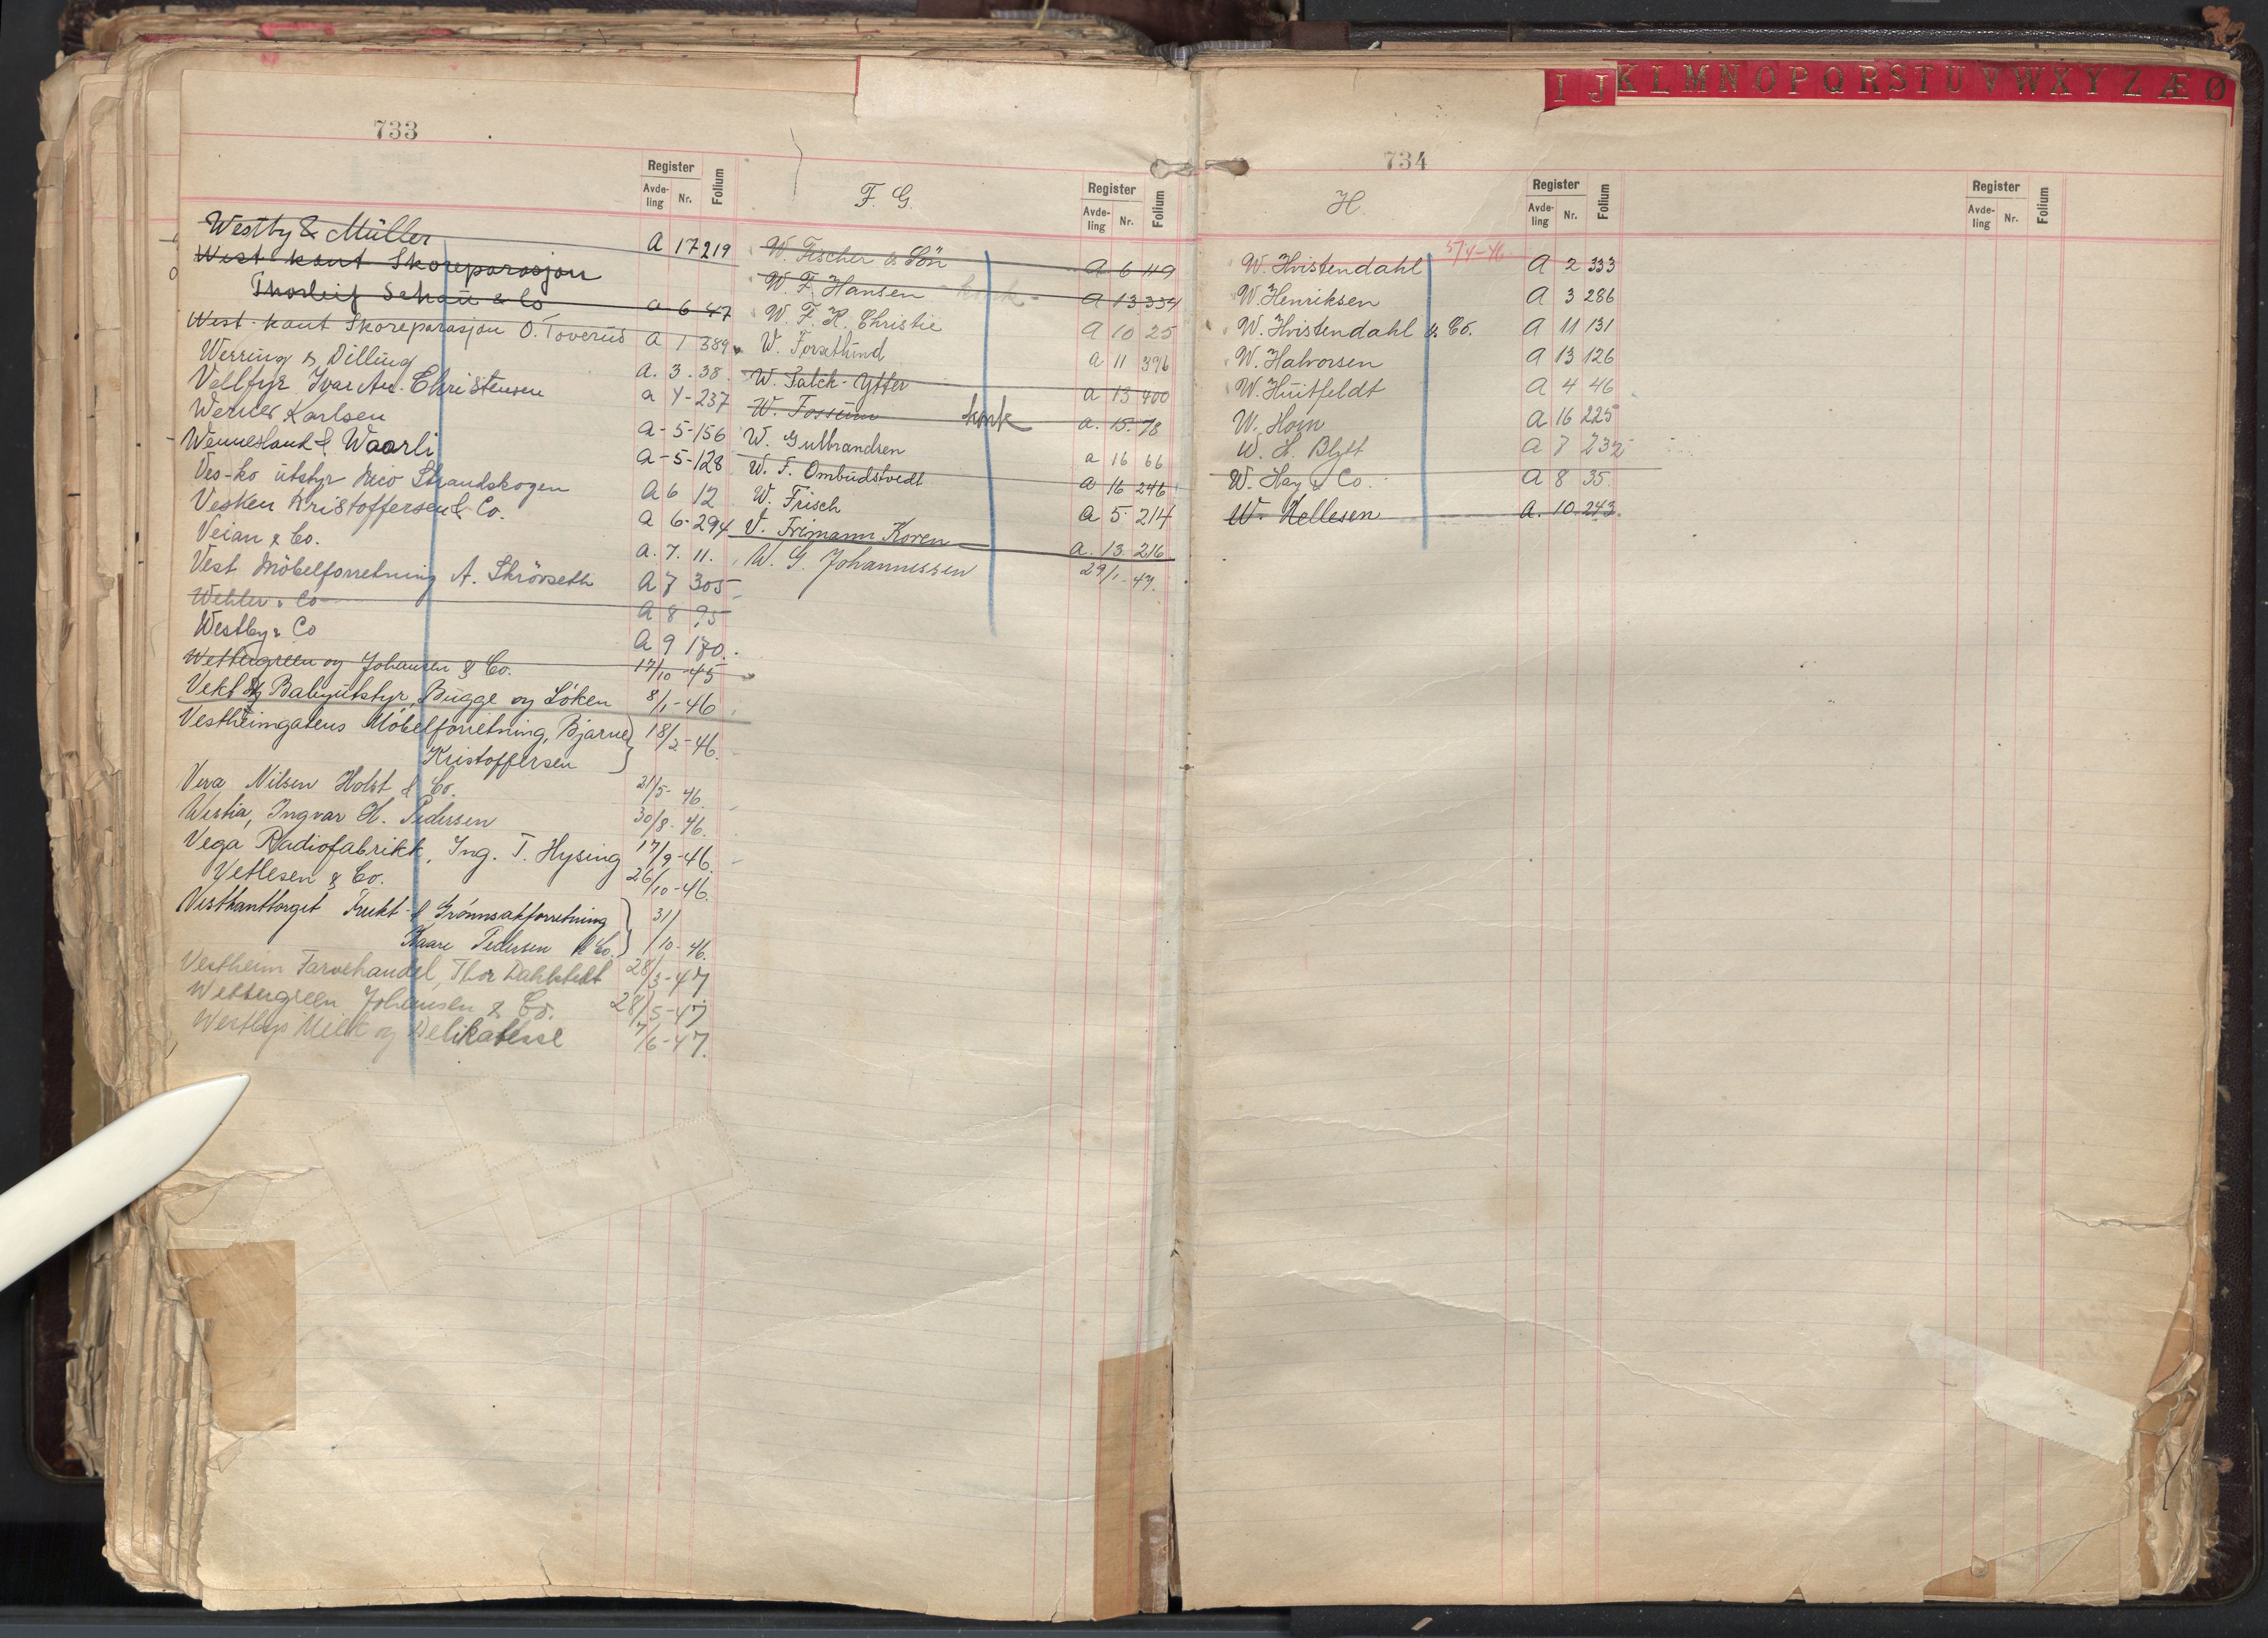 733
Register
Avde-
ling
Nr.
Folium
Westby & Müller A 17 219
West kant Skoreparasjon
Thorleif Schau & Co a 6 47
West-kant Skoreparasjon O. Toverud A 1 389
Werring & Dilling A. 3. 38.
Vellfyr Ivar An. Christensen a 4-237
Werner Karlsen a-5-156
Wennesland & Waarli a-5-128
Ves-ko utstyr Nico Strandskogen A 6 12
Vesken Kristoffersen & Co. a 6-294
Veian & Co. a. 7. 11.
Vest Möbelforretning A. Skrövseth A 7 305
Wehler & Co A 8 95
Westby & Co A 9 170.
Wettergreen og Johansen & Co. 17/10-45
Vekt og Babyutstyr, Bugge og Söken 8/1-46
Vestheimgatens Möbelforretning, Bjarne 18/2-46.
Kristoffersen
Vera Nilsen Holst & Co. 21/5-46.
Westia, Ingvar H. Pedersen 30/8-46.
Vega Radiofabrikk, Ing. T. Hysing 17/9-46.
Vetlesen & Co. 26/10-46.
Vestkanttorget Frukt- & Grönnsakforretning 31/
Kaare Pedersen & Co. /10-46.
Vestheim Farvehandel, Thor Dahlstedt 28/3-47
Wettergreen Johansen & Co. 28/5-47
Westbys Melk og Delikatesse 7/6-47.
F. G.
Register
Avde-
ling
Nr.
Folium
W. Fischer & Sön A 6 119
W. F. Hansen konk A 13 354
W. F. K. Christie A 10 25
W. Forsetlund a 11 396
W. Falck-Ytter a 13 400
W. Fossum konk a. 15. 78
W. Gulbrandsen a 16 66
W. F. Ombudstvedt a 16 246
W. Frisch a 5 214
V. Frimann Koren a. 13. 216
W. G. Johannessen 29/1-47.
734
I J K L M N O P Q R S T U V W X Y Z Æ Ø
H.
Register
Avde-
ling
Nr.
Folium
Register
Avde-
ling
Nr.
Folium
5/4-46
W. Hvistendahl A 2 333
W. Henriksen A 3 286
W. Hvistendahl & Co. A 11 131
W. Halvorsen A 13 126
W. Huitfeldt A 4 46
W. Horn A 16 225
W. H. Blytt A 7 232
W. Hay & Co. A 8 35.
W. Hellesen A. 10. 243.